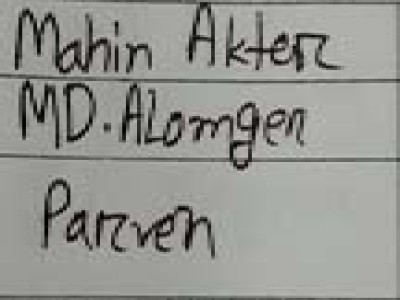 Mahin Akter
MD. Alomger
Parven